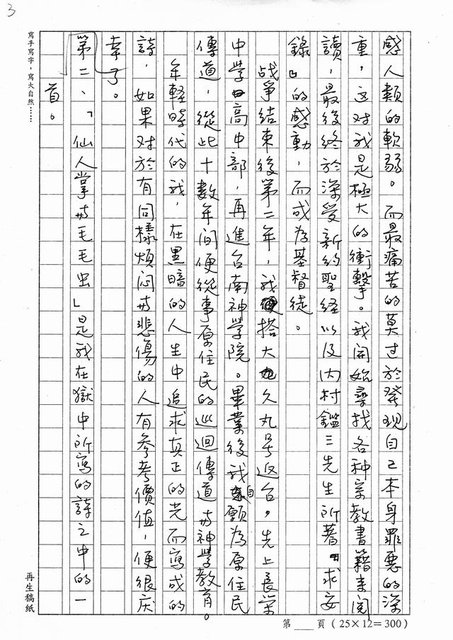 3
感人類的軟弱。而最痛苦的莫过於發現自己本身罪惡的深
重，这对我是極大的衝擊。我開始尋找各种宗教書籍來閱
讀，最後終於深受新約聖经以及内村鑑三先生所著「求安
錄」的感動，而成為基督徒。
战爭結束後第二年，我搭大久丸号返台。先上長榮
中學高中部，再進台南神學院。畢業後我自願為原住民
傳道，從此十數年间便從事原住民的巡迴傳道与神學教育。
年輕時代的我，在黑暗的人生中追求真正的光而寫成的
詩，如果对於有同樣煩闷与悲傷的人有参考價值，便很庆
幸了。
第二、「仙人掌与毛毛虫」是我在獄中所寫的詩之中的一
首。
寫手寫字，寫大自然……
再生稿紙
第　頁（25×12＝300）